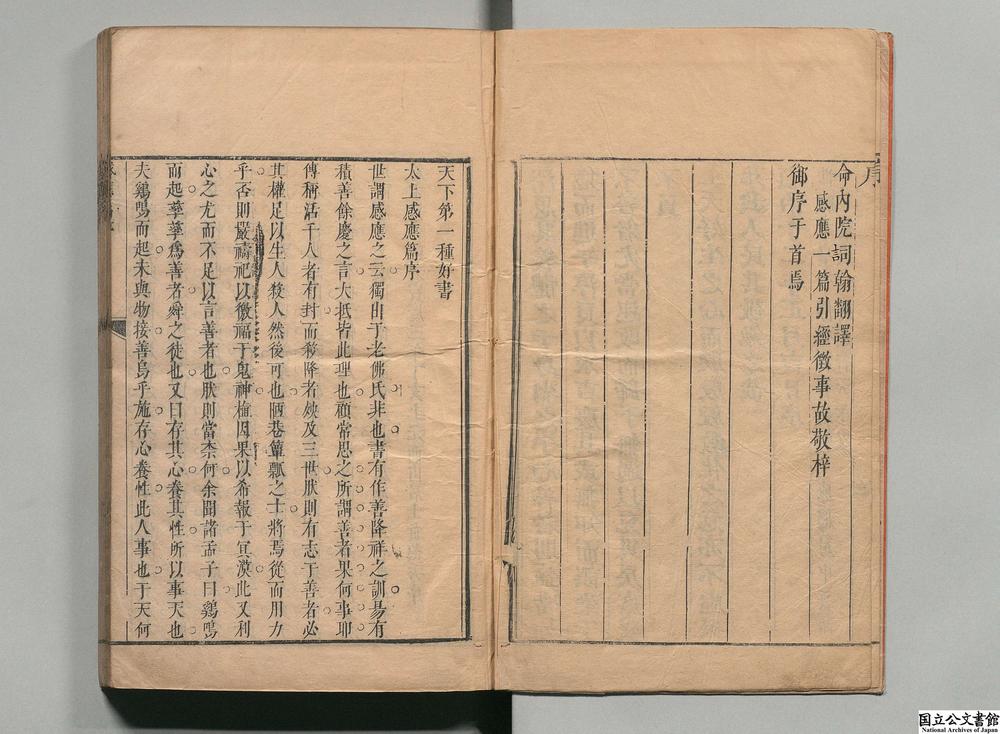 序
命內院詞翰翻譯
感應一篇引經徵事故敬梓
御序于首焉
天下第一種好書
太上感應篇序
世謂感應之云獨出于老佛氏非也書有作善降祥之訓易有
積善餘慶之言大抵皆此理也顧常思之所謂善者果何事耶
傳稱活千人者有封而殺降者殃及三世肰則有志于善者必
其權足以生人殺人然後可也陋巷簞瓢之士將焉從而用力
乎否則嚴禱祀以徼福于鬼神植因果以希報于冥漠此又利
心之尤而不足以言善者也肰則當柰何余聞諸孟子曰鷄鳴
而起孳孳爲善者舜之徒也又曰存其心養其性所以事天也
夫鷄鳴而起未與物接善烏乎施存心養性此人事也于天何
国立公文書館
National Archives of Japan